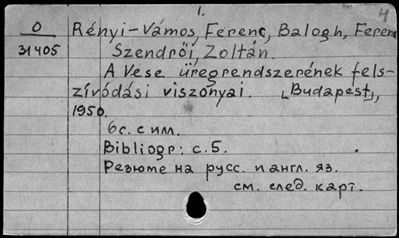 1.
4
O
31405
Rényi-Vámos, Ferenc, Balogh, Ferenc
Szendrői, Zoltán.
A Vese üregrendszerének fels-
zívódási viszonyai. [Budapest],
1950.
6 с. с илл.
Bibliogr: с. 5.
Резюме на русс. и англ. яз.
см. след. карт.